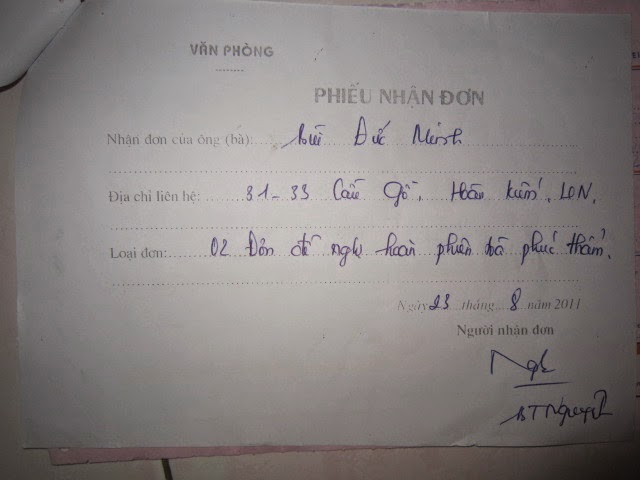 VĂN PHÒNG
PHIẾU NHẬN ĐƠN
Nhận đơn của ông (bà): Bùi Đức Minh
Địa chỉ liên hệ: 31-33 Cầu Gỗ, Hoàn Kiếm, HN.
Loại đơn: 02 Đơn đề nghị hoãn phiên tòa phúc thẩm.
Ngày 23 tháng 8 năm 2011
Người nhận đơn